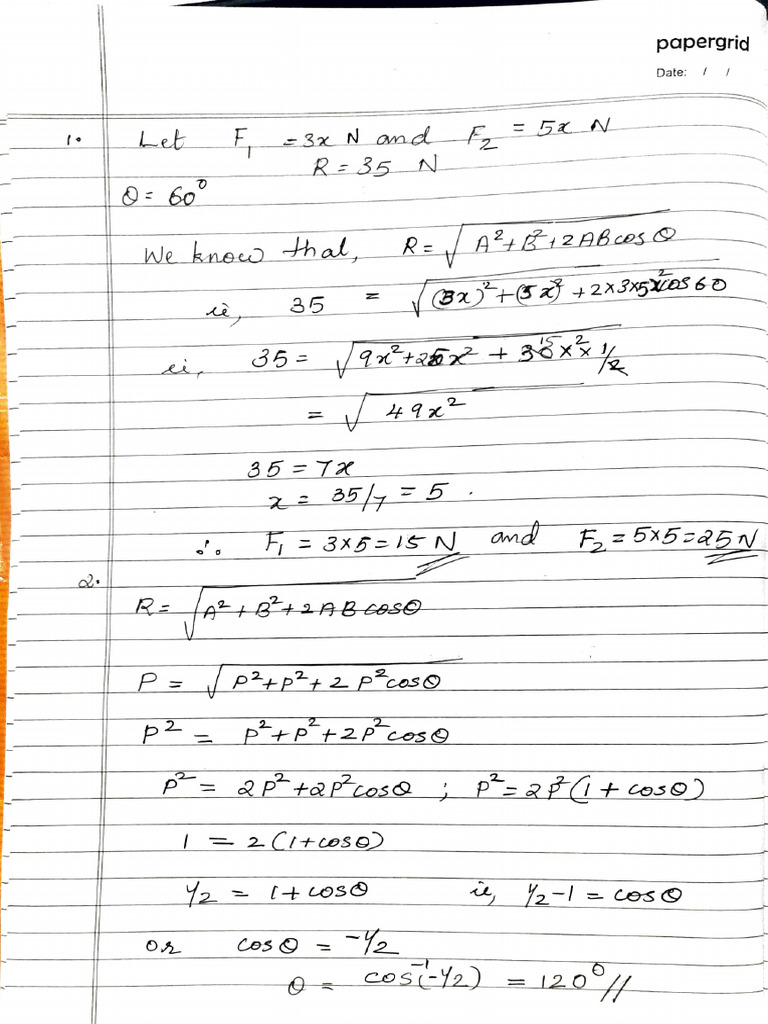 papergrid
Date: / /
1. Let F₁ = 3x N and F₂ = 5x N
R = 35 N
θ = 60°
We know that, R = √(A² + B² + 2ABcosθ)
ie, 35 = √((3x)² + (5x)² + 2×3×5x²cos60)
ie, 35 = √(9x² + 25x² + 30x² × 1/2) 15
= √(49x²)
35 = 7x
x = 35/7 = 5.
∴ F₁ = 3×5 = 15 N and F₂ = 5×5 = 25 N
2.
R = √(A² + B² + 2ABcosθ)
P = √(P² + P² + 2P²cosθ)
P² = P² + P² + 2P²cosθ
P² = 2P² + 2P²cosθ ; P² = 2P²(1 + cosθ)
1 = 2(1 + cosθ)
1/2 = 1 + cosθ ie, 1/2 - 1 = cosθ
or cosθ = -1/2
θ = cos⁻¹(-1/2) = 120° //